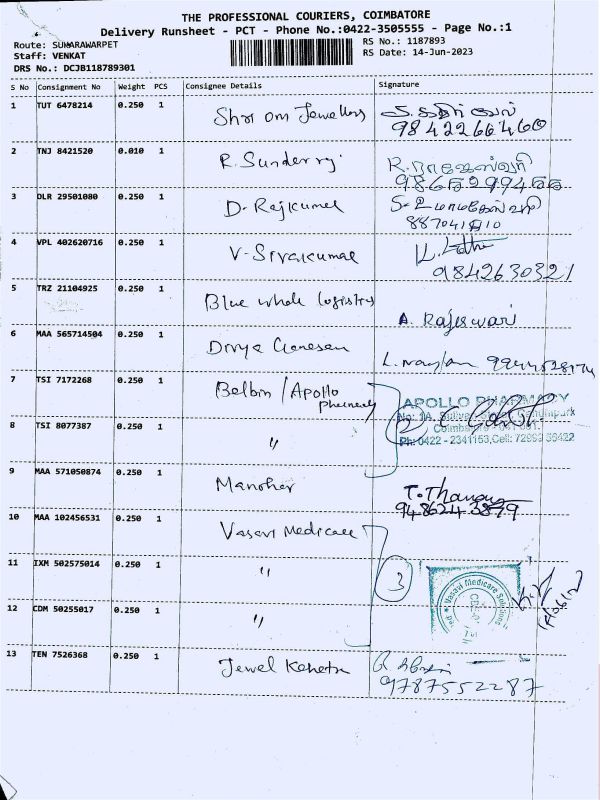 THE PROFESSIONAL COURIERS, COIMBATORE
Delivery Runsheet - PCT - Phone No.:0422-3505555 - Page No.:1
Route: SUKRAWARPET
Staff: VENKAT
DRS No.: DCJB118789301
RS No.: 1187893
RS Date: 14-Jun-2023
S No Consignment No Weight PCS Consignee Details Signature
1 TUT 6478214 0.250 1 Shri om Jewellers
9842266460
2 TNJ 8421520 0.010 1 R. Sunderraj R. ராஜேஸ்வரி
3 DLR 29501080 0.250 1 D. Rajkumar S. உமாமகேஸ்வரி
4 VPL 402620716 0.250 1 V. Sivakumar
9842630321
5 TRZ 21104925 0.250 1 Blue whale logistry A. Rajeswari
6 MAA 565714504 0.250 1 Divya Ganesan
7 TSI 7172268 0.250 1 Belbin / Apollo
Pharmacy
APOLLO PHARMACY
8 TSI 8077387 0.250 1 " 2
Coimbatore - 641 001.
Ph: 0422 - 2341153, Cell: 72993 36422
9 MAA 571050874 0.250 1 Manohar T. Thangam
9486243879
10 MAA 102456531 0.250 1 Vasavi Medicare
11 IXM 502575014 0.250 1 " 3
Vasavi Medicare Solutions
12 CDM 50255017 0.250 1 "
13 TEN 7526368 0.250 1 Jewel
9787552287